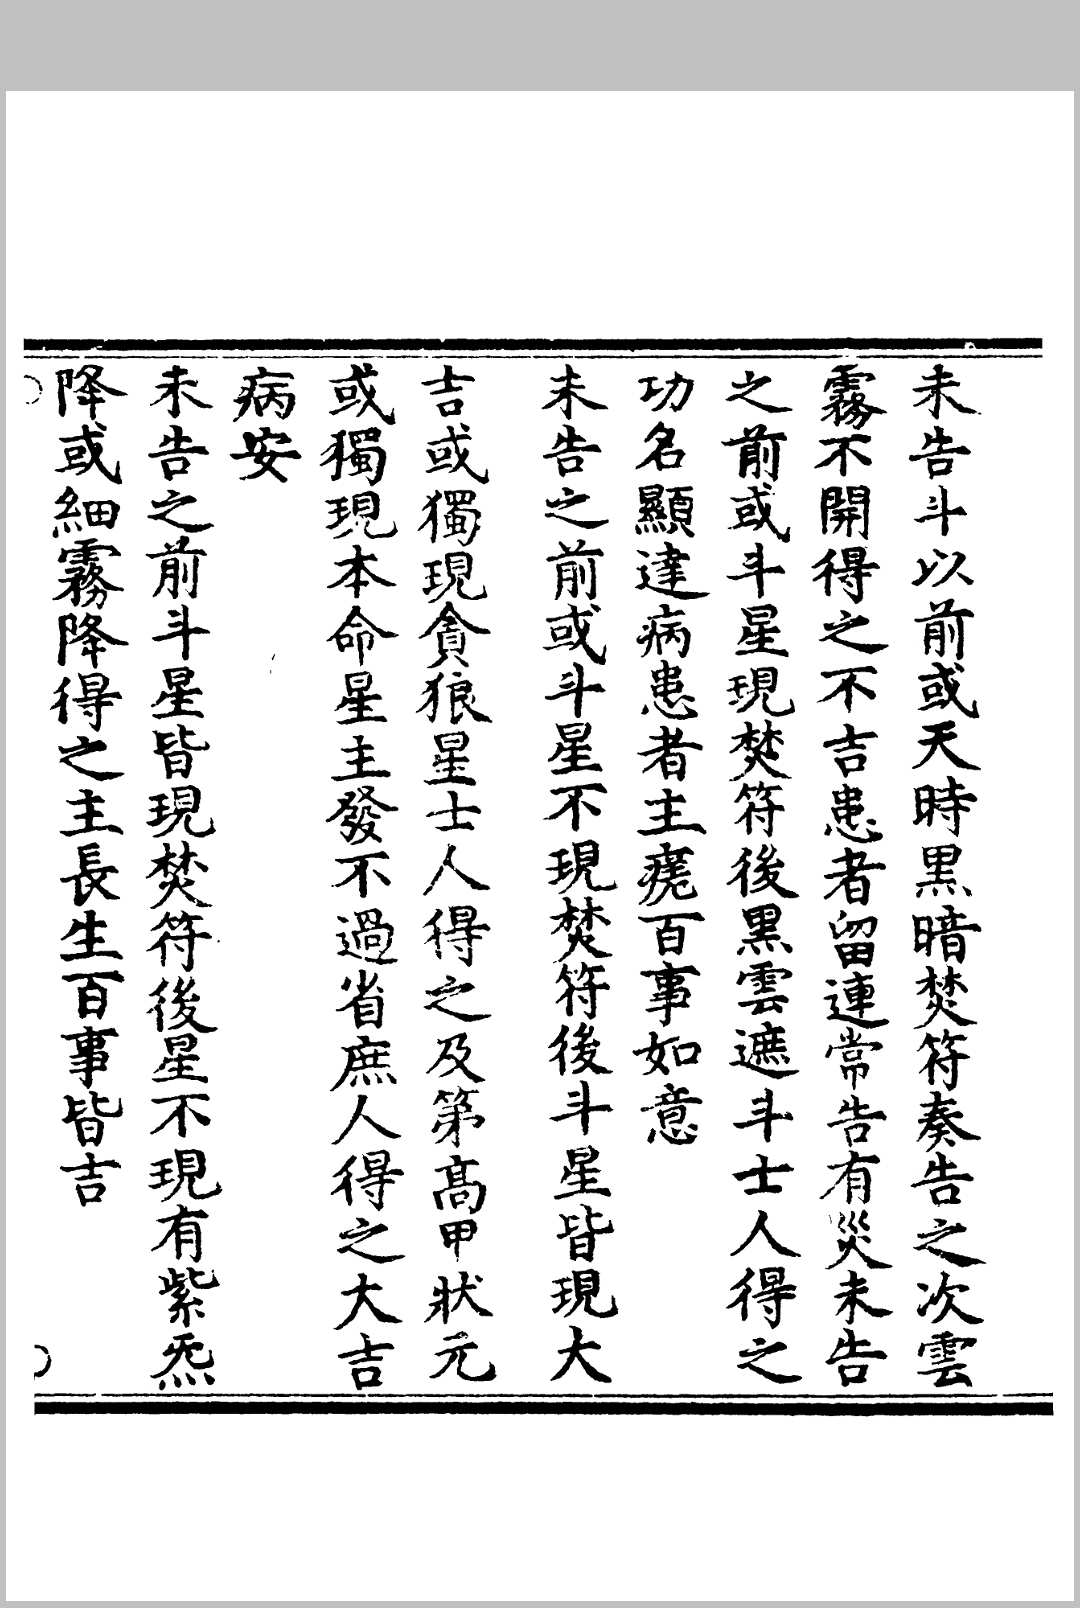 未告斗以前或天時黒暗焚符奏告之次雲
霧不開得之不吉患者留連常告有災未告
之前或斗星現焚符後黒雲遮斗士人得之
功名顯達病患者主痊百事如意
未告之前或斗星不現焚符後斗星皆現大
吉或獨現貪狼星士人得之及第髙甲狀元
或獨現本命星主發不過省庶人得之大吉
病安
未告之前斗星皆現焚符後星不現有紫炁
降或細霧降得之主長生百事皆吉